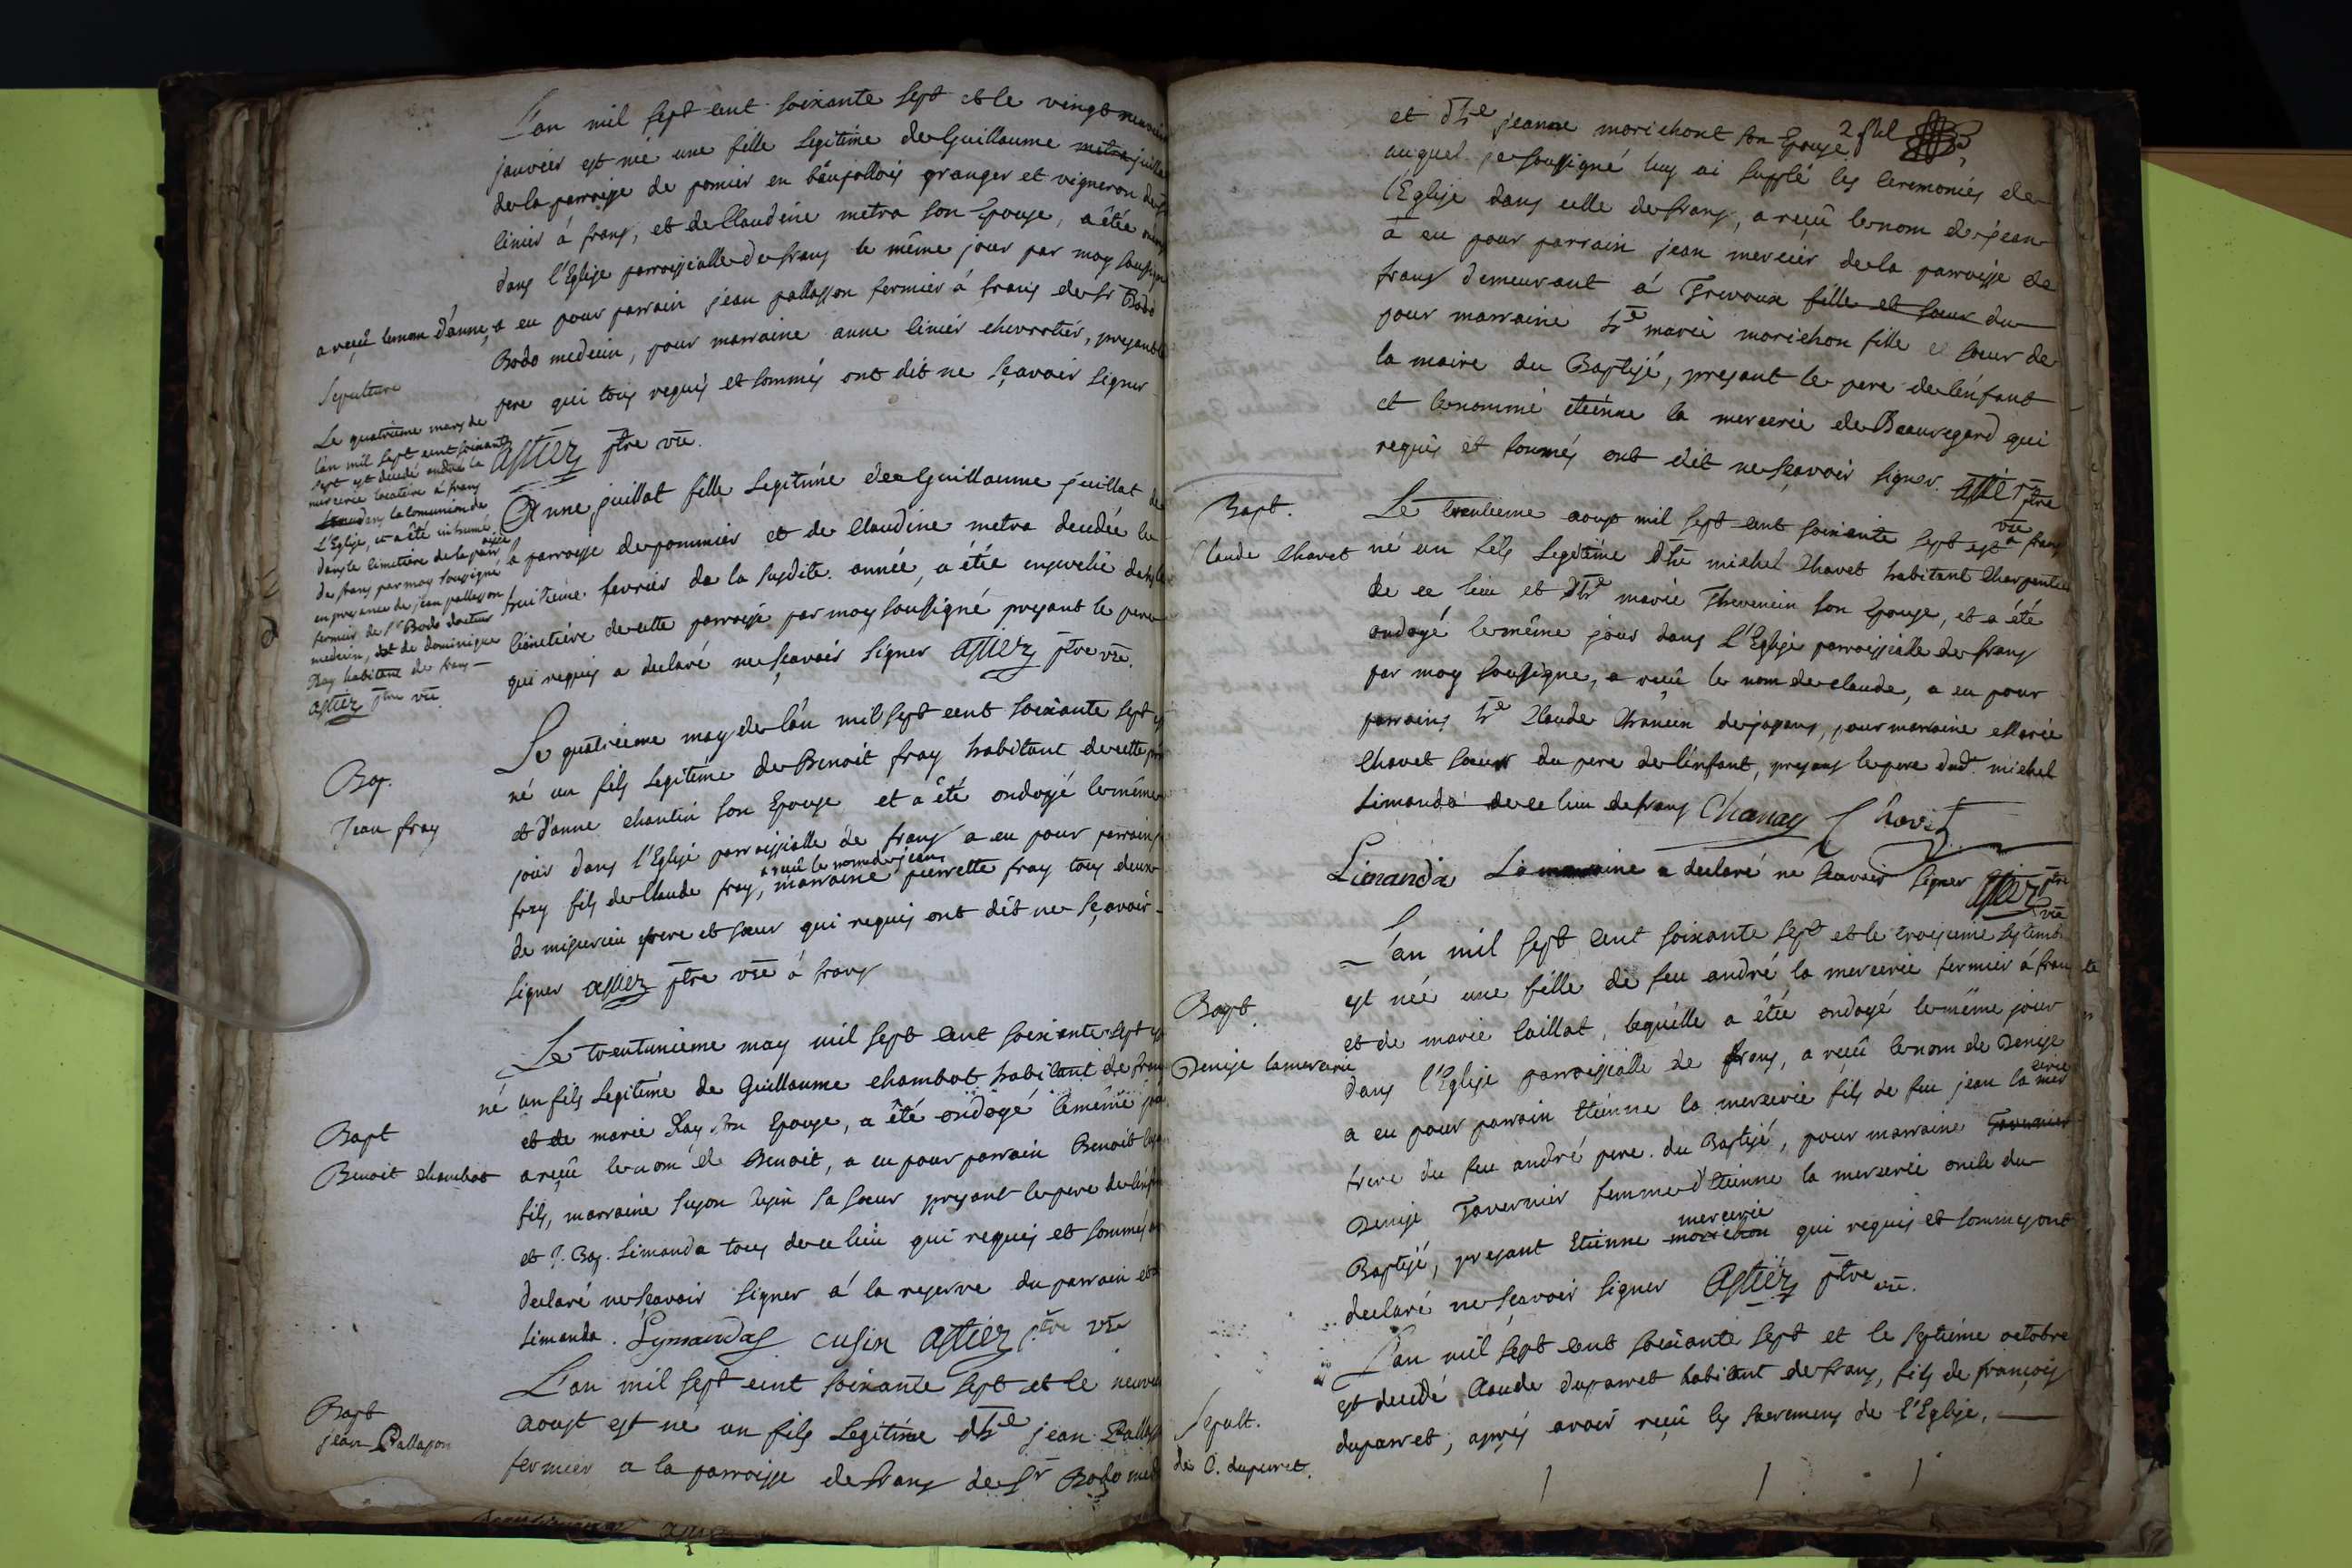 L'an mil sept cent soixante sept et le vingt neuvie
janvier est née une fille legitime de Guillaume metra juilla
de la parroisse de pomier en baujollois granger et vigneron de
linier á frans, et de Claudine metra son Epouse, a êtée
dans l'Eglise parroissialle de frans le même jour par moy soussigné
a reçû le nom d'anne, a eu pour parrain jean pallasson fermier á frans de Sr Bodo
Bodo medecin, pour marraine anne linier chevrotier, presant le
pere qui tous requis et sommés ont dit ne sçavoir signer
astier ptre vre.
Sepulture
Le quatrieme mars de
l'an mil sept cent soixante
sept est decedé andré la
mercerie locataire á frans
dans la comunion de
L'Eglise, et a êté inhumé
dans le cimetiere de la parr
oisse
de frans par moy soussigné
en presance de jean pallasson
fermier de Sr Bodo docteur
medecin, et de dominique
Ray habitant de frans
astier ptre vre.
Anne juillat fille legitime de Guillaume juillat de
la parroisse de pommier et de Claudine metra decedée le
huitieme fevrier de la susdite année, a étée ensevelie dans le
cimetiére de cette parroisse par moy soussigné presant le pere
qui requis a declaré ne sçavoir signer astier ptre vre.
Bap.
Jean fray
Le quatrieme may de l'an mil sept cent soixante sept est
né un fils legitime de Benoit fray habitant de cette
et d'anne chantin son Epouse et a êté ondoyé le même
jour dans l'Eglise parroissialle de frans a eu pour parrain
a reçû le nom de jean
fray fils de Claude fray, marraine pierrette fray tous deux
de miserieu frere et sœur qui requis ont dit ne sçavoir
signer astier ptre vre á frans
Bapt
Benoit chambot
Le trentunieme may mil sept cent soixante sept est
né un fils legitime de Guillaume chambot habitant de frans
et de marie Ray son Epouse, a êté ondoyé le même jour
a reçû le nom de Benoit, a eu pour parrain Benoit
fils, marraine suson cusin sa sœur presant le pere de l'enfant
et J. Bap. Limanda tous de ce lieu qui requis et sommés
declaré ne sçavoir signer á la reserve du parrain et
Limanda. Lymandas cusin astier ptre vre
Bapt
jean Pallasson
L'an mil sept cent soixante sept et le neuvie
aoust est né un fils legitime d'hte jean Pallasson
fermier a la parroisse de frans de Sr Bodo mede
2
et d'hte jeanne morichont son Epouse
auquel je soussigné luy ai supplé les ceremonies de
l'Eglise dans celle de frans, a reçû le nom de jean
a eu pour parrain jean mercier de la parroisse de
frans demeurant á Trevoux fille et sœur du
pour marraine hte marie morichon fille et sœur de
la maire du Baptisé, presant le pere de l'enfant
et le nommé etienne la mercerie de Beauregard qui
requis et sommés ont dit ne sçavoir signer. astier ptre
vre
a frans
Bapt.
Claude Chavet
Le trentieme aoust mil sept cent soixante sept est
né un fils legitime d'hte michel Chavet habitant Charpentier
de ce lieu et d'hte marie Thevenin son Epouse, et a été
ondoyé le même jour dans L'Eglise parroissialle de frans
par moy soussigne, a reçû le nom de claude, a eu pour
parrains hte Claude Chanein de jaḡans, pour marraine Marie
Chavet sœur du pere de l'enfant, presans le pere michel
Limanda de ce lieu de frans Chanay Chavet
Limanda La marraine a declaré ne sçavoir signer astier ptre
vre
Bapt.
Denise lamercerie
L'an mil sept cent soixante sept et le troisieme septemb
est née une fille de feu andré la mercerie fermier á frans
et de marie Caillat, laquelle a êtée ondoyé le même jour
dans l'Eglise parroissialle de frans, a reçû le nom de Denise
a eu pour parrain Etienne la mercerie fils de feu jean la mer
cerie
frere du feu andré pere du Baptisé, pour marraine Tavernier
Denise Tavernier femme d'Etienne la mercerie oncle du
Baptisé, presant Etienne morichon qui requis et sommés ont
mercerie
declaré ne sçavoir signer Astier ptre vre.
Sepult.
de C. duperret.
L'an mil sept cent soixante sept et le septieme octobre
est decedé Claude duparret habitant de frans, fils de françois
duparret, aprés avoir reçû les sacremens de l'Eglise,